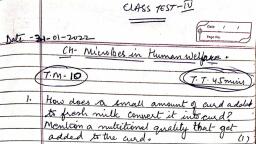 CLASS TEST - IV
Date
Page No.
Date - 24-01-2022
Ch- Microbes in Human Welfare.
T.M-10
T.T. 45 mins
1. How does a small amount of curd added
to fresh milk convert it into curd?
Mention a nutritional quality that get
added to the curd. (1)